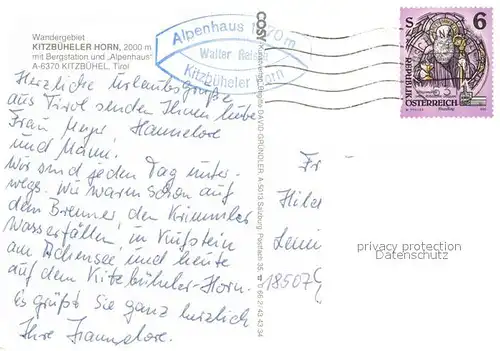 Wandergebiet
KITZBÜHELER HORN, 2000 m
mit Bergstation und „Alpenhaus"
A-6370 KITZBÜHEL, Tirol
Herzliche Urlaubsgrüße
aus Tirol senden Ihnen liebe
Frau Meyer Hannelore
und Manni.
Wir sind jeden Tag unter-
wegs. Wir waren schon auf
dem Brenner, den Krimmler
Wasserfällen, in Kufstein
am Achensee, und heute
auf dem Kitzbühler-Horn.
Es grüßt Sie ganz herzlich
Ihre Hannelore.
Alpenhaus 1670 m
Walter
Kitzbüheler Horn
COSY DAVID GRÜNDLER, A-5013 Salzburg, Postfach 35, 0 66 2/43 43 34
S 6
REPUBLIK
ÖSTERREICH
Fr
Hilde
privacy protection
Datenschutz
18507